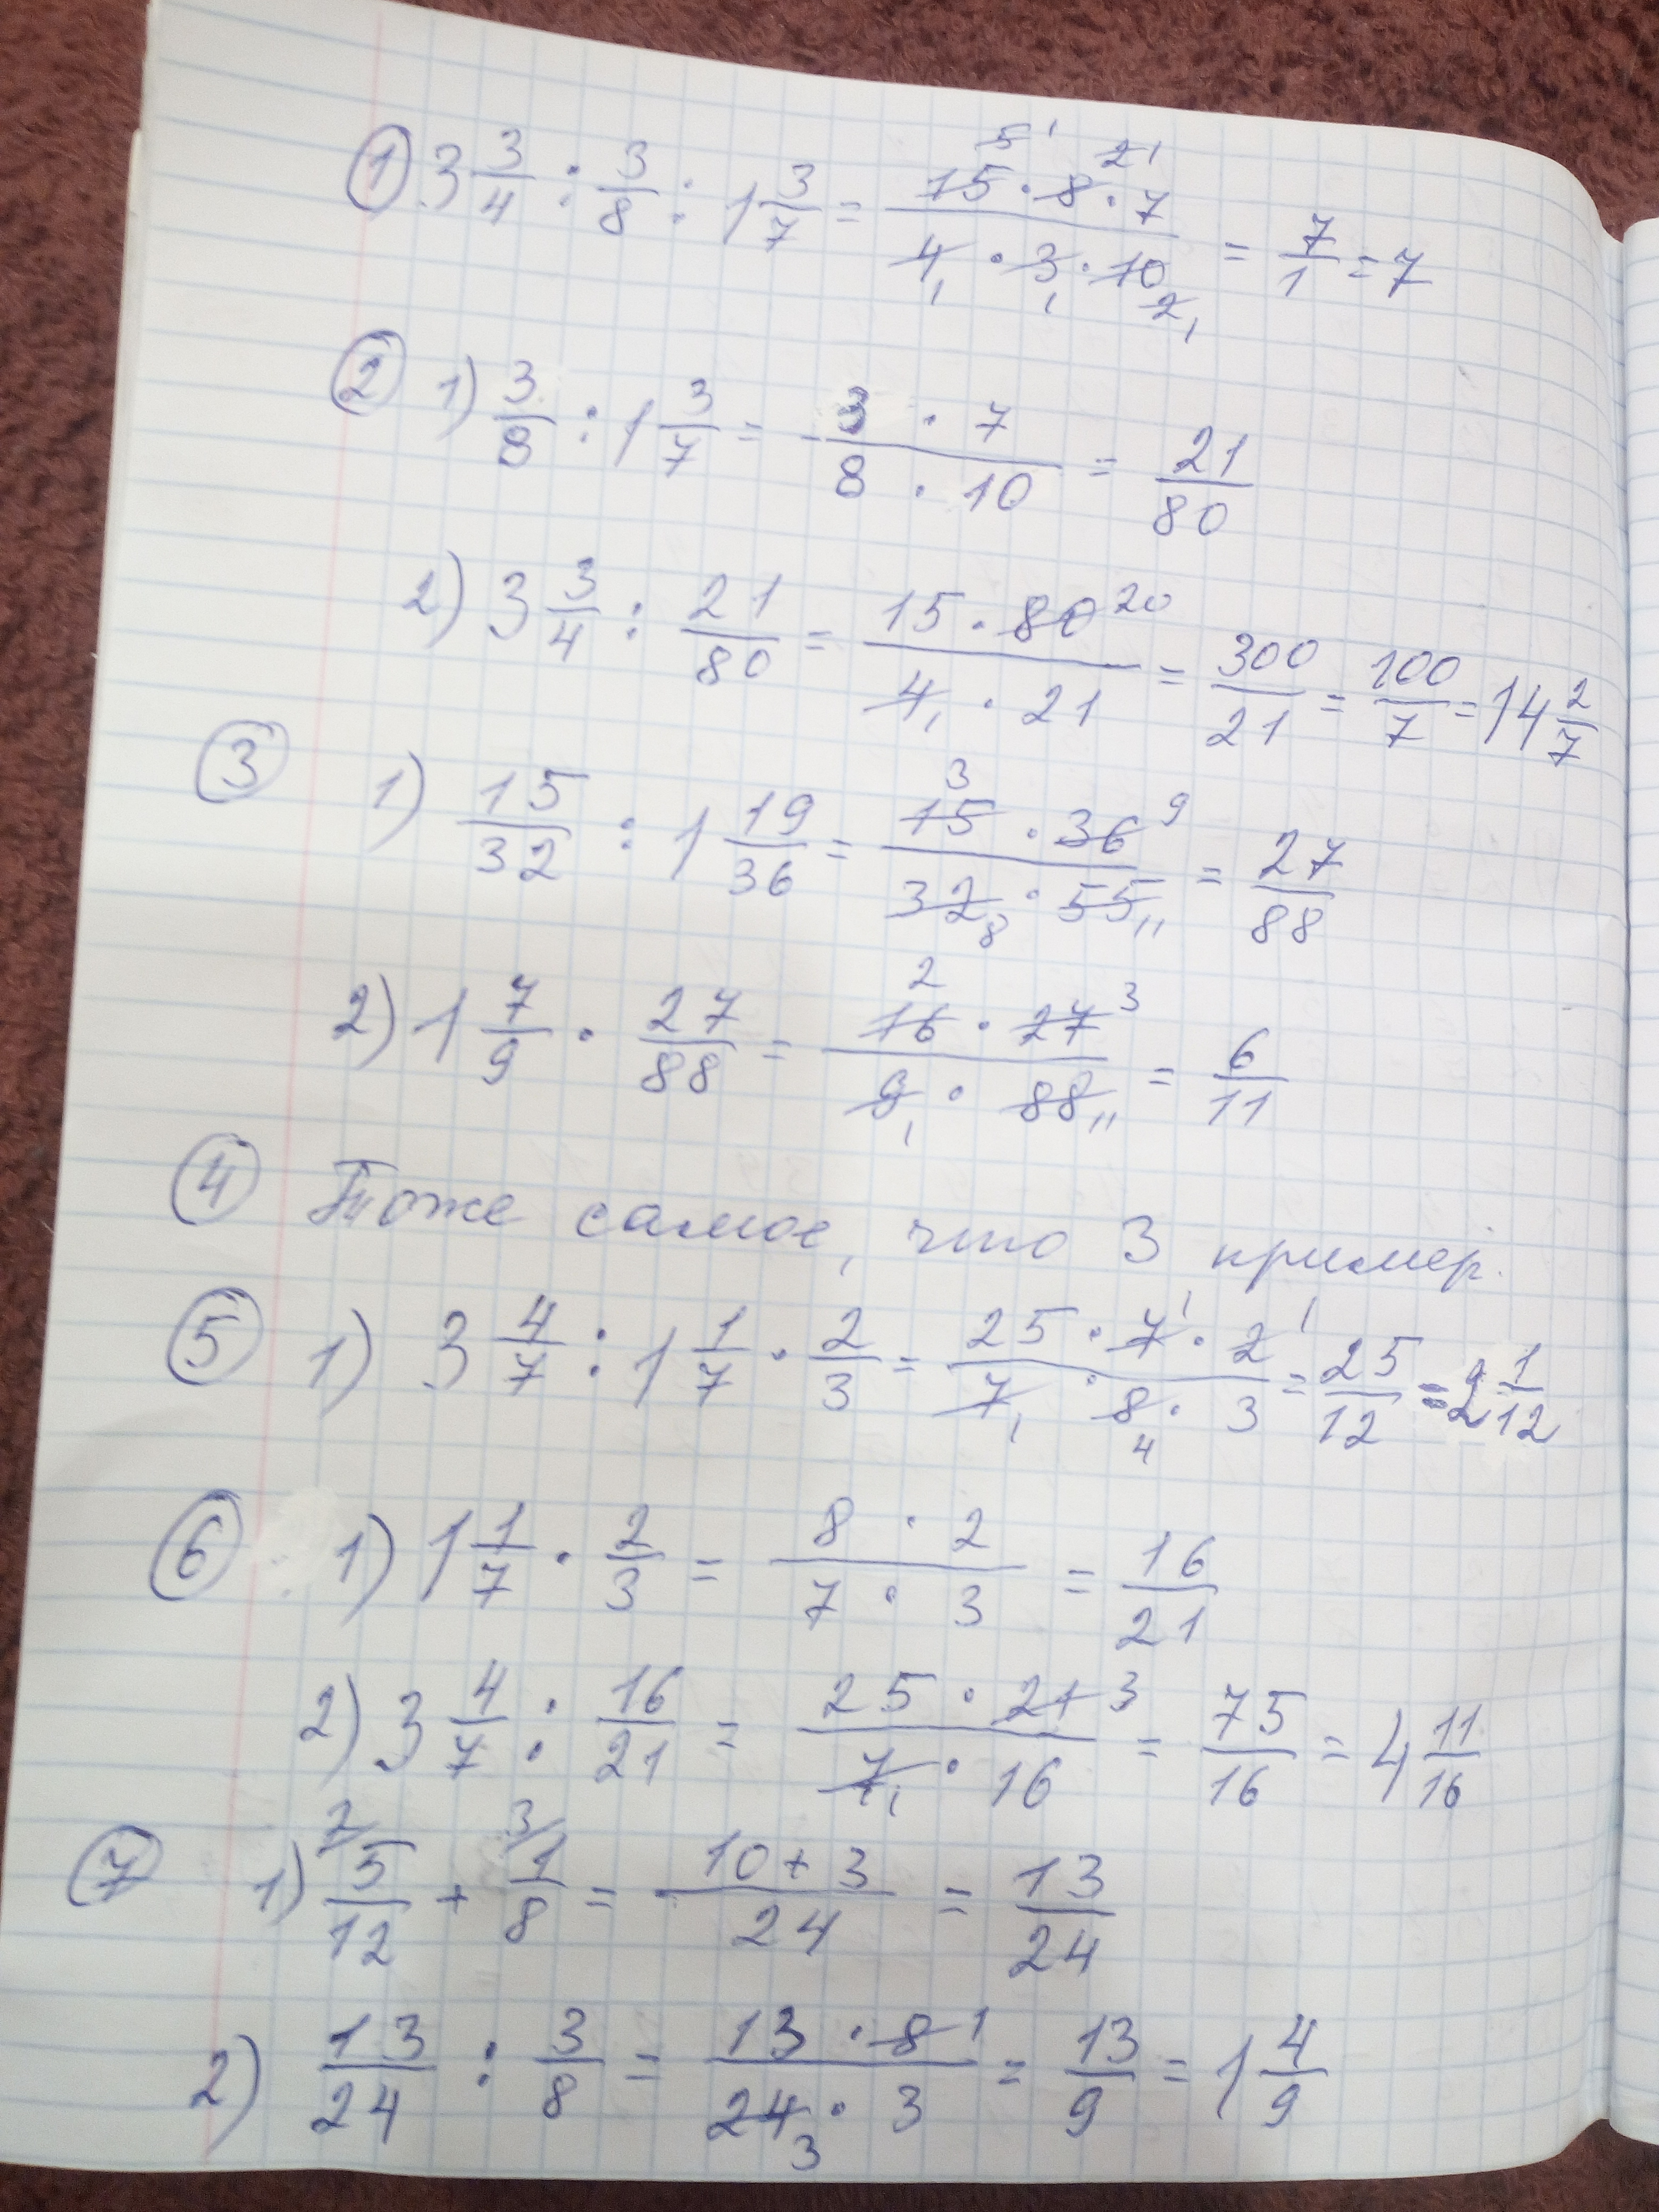 ① 3 3/4 : 3/8 : 1 3/7 = (15 · 8 · 7)/(4 · 3 · 10) = 7/1 = 7
② 1) 3/8 : 1 3/7 = (3 · 7)/(8 · 10) = 21/80
2) 3 3/4 : 21/80 = (15 · 80)/(4 · 21) = 300/21 = 100/7 = 14 2/7
③ 1) 15/32 : 1 19/36 = (15 · 36)/(32 · 55) = 27/88
2) 1 7/9 · 27/88 = (16 · 27)/(9 · 88) = 6/11
④ Тоже самое, что 3 пример.
⑤ 1) 3 4/7 : 1 1/7 · 2/3 = (25 · 7 · 2)/(7 · 8 · 3) = 25/12 = 2 1/12
⑥ 1) 1 1/7 · 2/3 = (8 · 2)/(7 · 3) = 16/21
2) 3 4/7 : 16/21 = (25 · 21)/(7 · 16) = 75/16 = 4 11/16
⑦ 1) 5/12 + 1/8 = (10 + 3)/24 = 13/24
2) 13/24 : 3/8 = (13 · 8)/(24 · 3) = 13/9 = 1 4/9